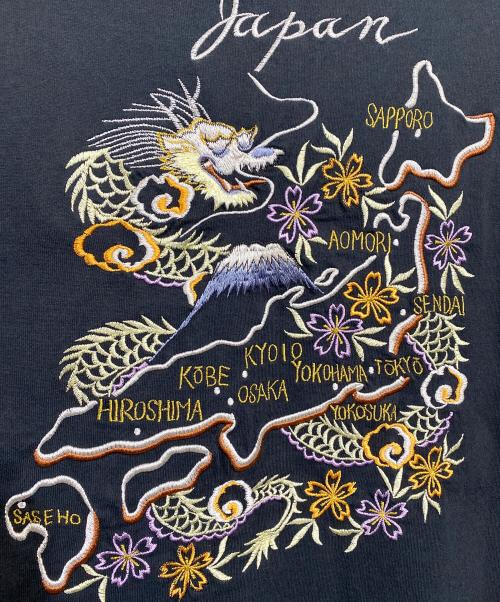 Japan
SAPPORO
AOMORI
SENDAI
KYOTO
KŌBE
YOKOHAMA
TŌKYŌ
OSAKA
HIROSHIMA
YOKOSUKA
SASEHO